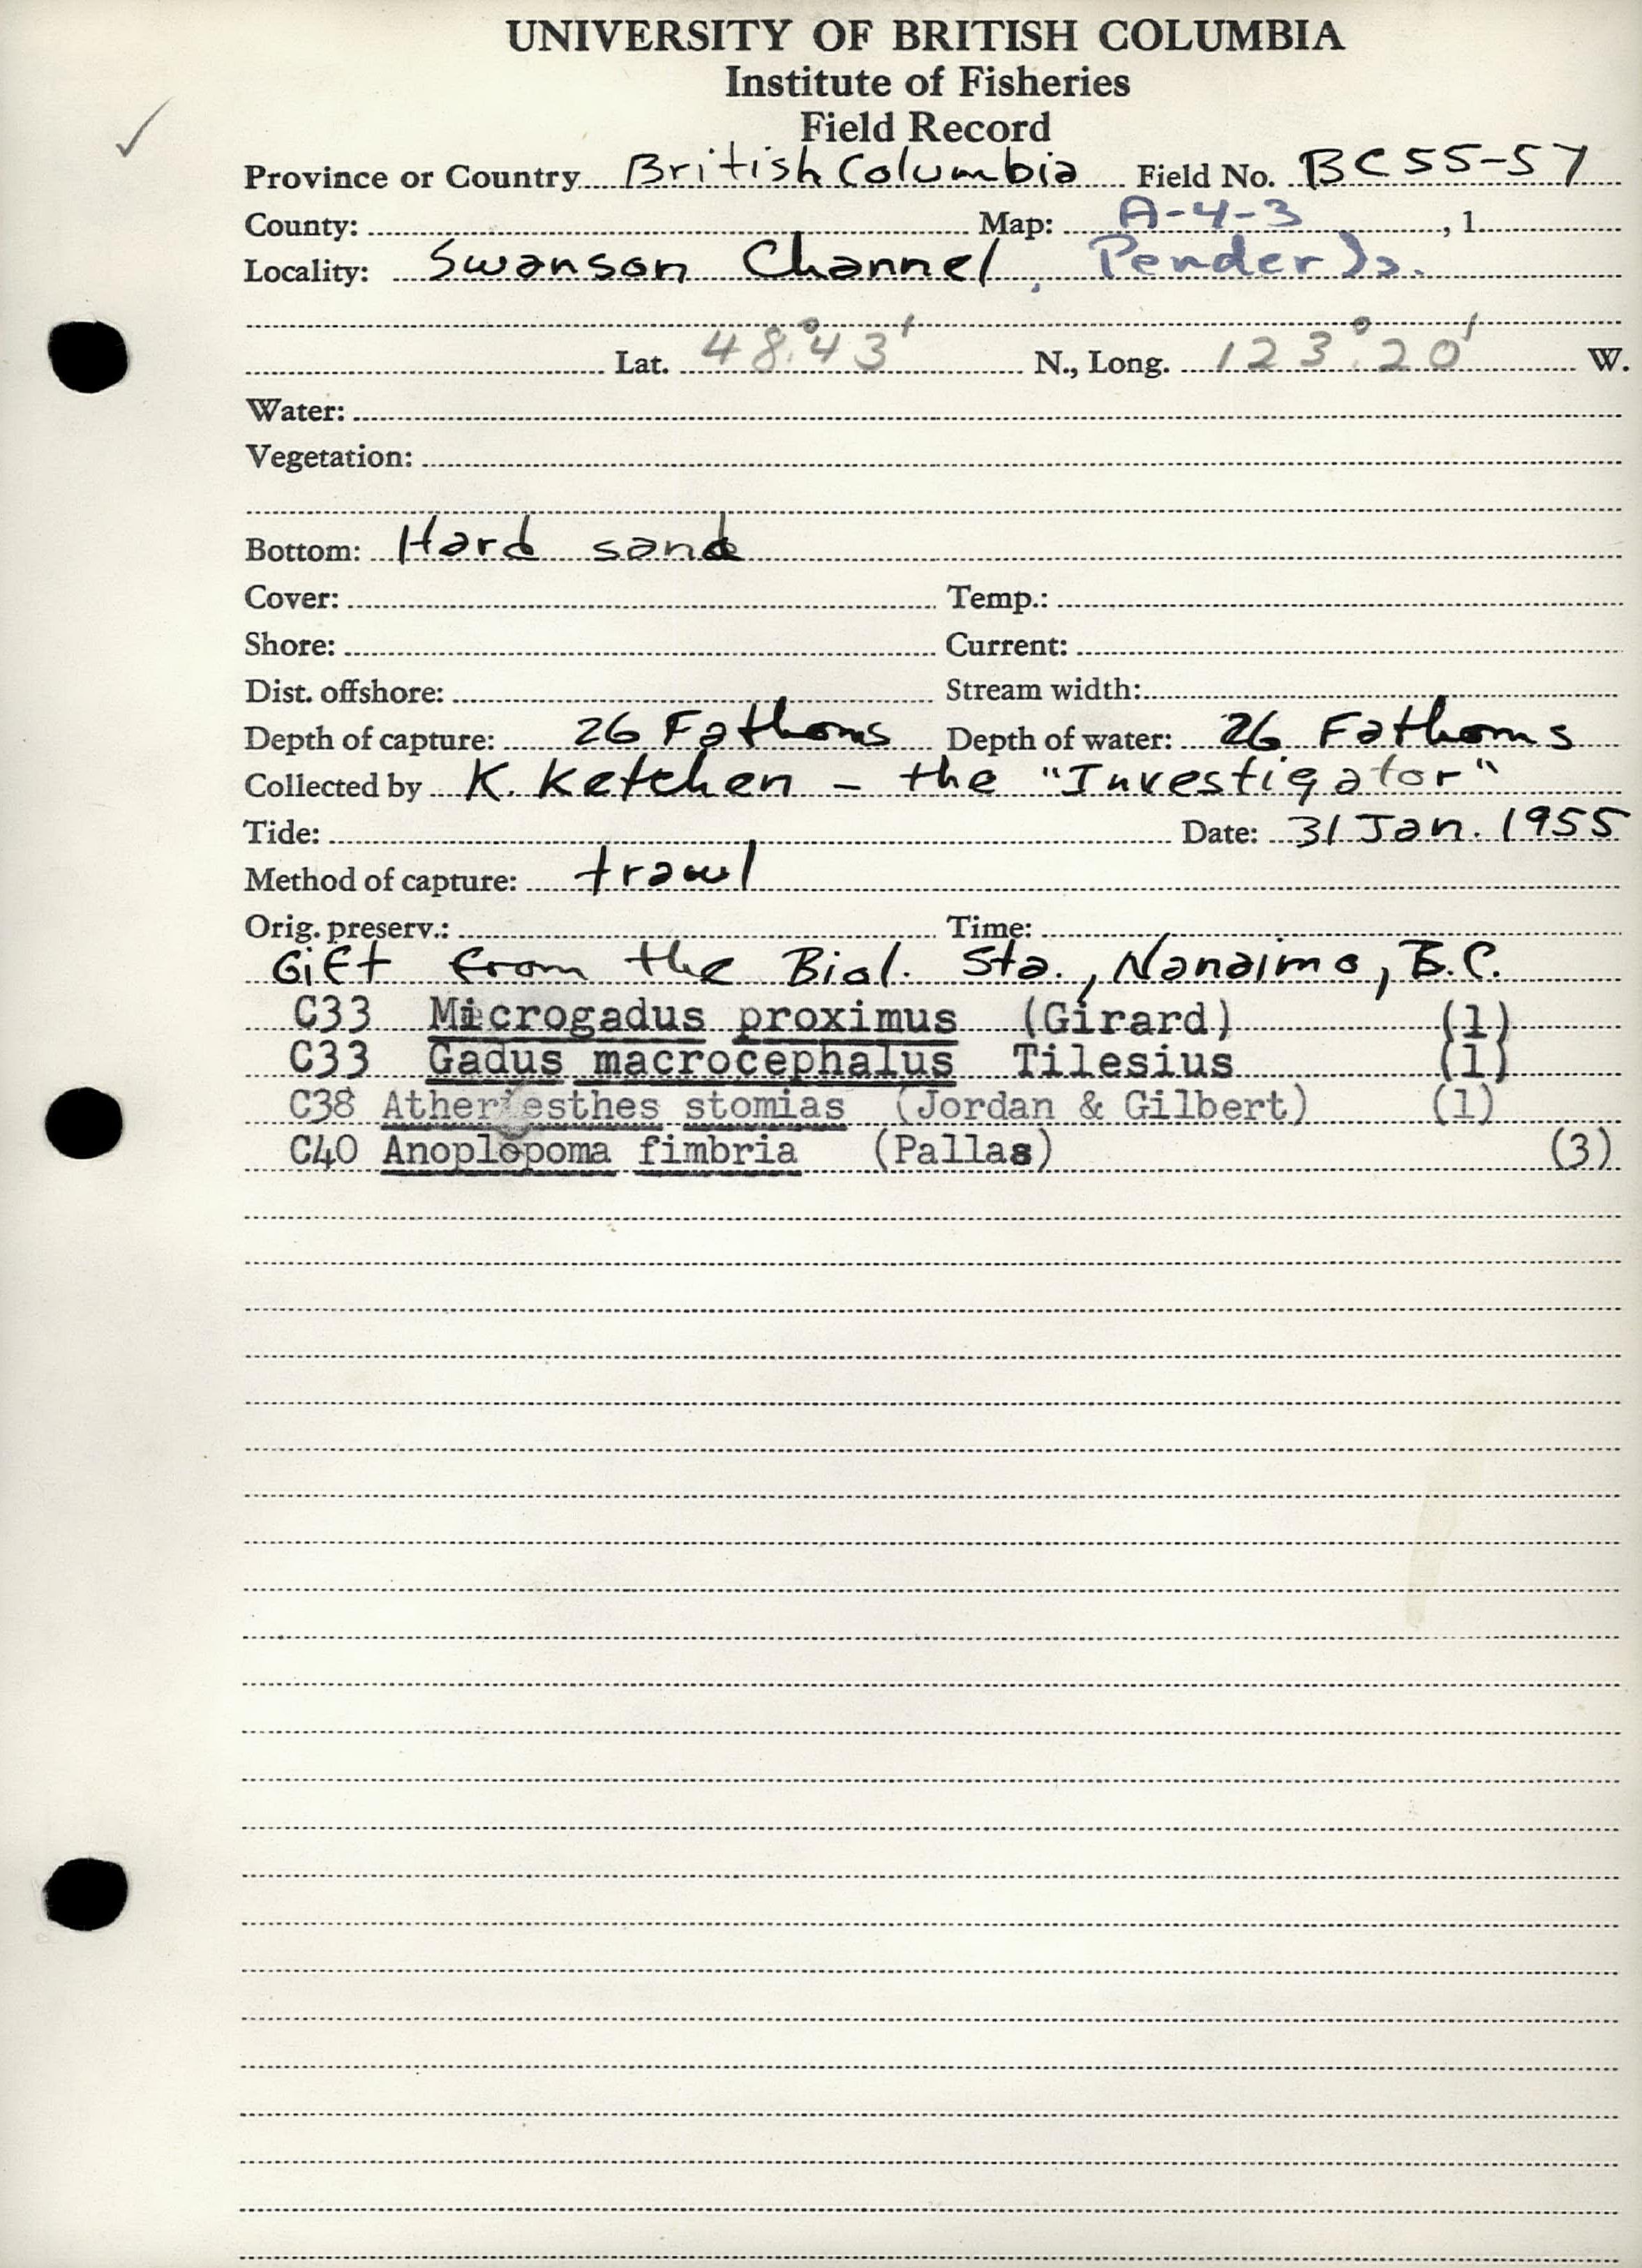 UNIVERSITY OF BRITISH COLUMBIA
Institute of Fisheries
Field Record
Province or Country British Columbia Field No. BC55-57
County: Map: A-4-3, 1
Locality: Swanson Channel, Pender Is.
Lat. 48°43' N., Long. 123°20' W.
Water:
Vegetation:
Bottom: Hard sand
Cover: Temp.:
Shore: Current:
Dist. offshore: Stream width:
Depth of capture: 26 Fathoms Depth of water: 26 Fathoms
Collected by K. Ketchen - the "Investigator"
Tide: Date: 31 Jan. 1955
Method of capture: trawl
Orig. preserv.: Time:
Gift from the Biol. Sta., Nanaimo, B.C.
C33 Microgadus proximus (Girard) (1)
C33 Gadus macrocephalus Tilesius (1)
C38 Atheresthes stomias (Jordan & Gilbert) (1)
C40 Anoplopoma fimbria (Pallas) (3)